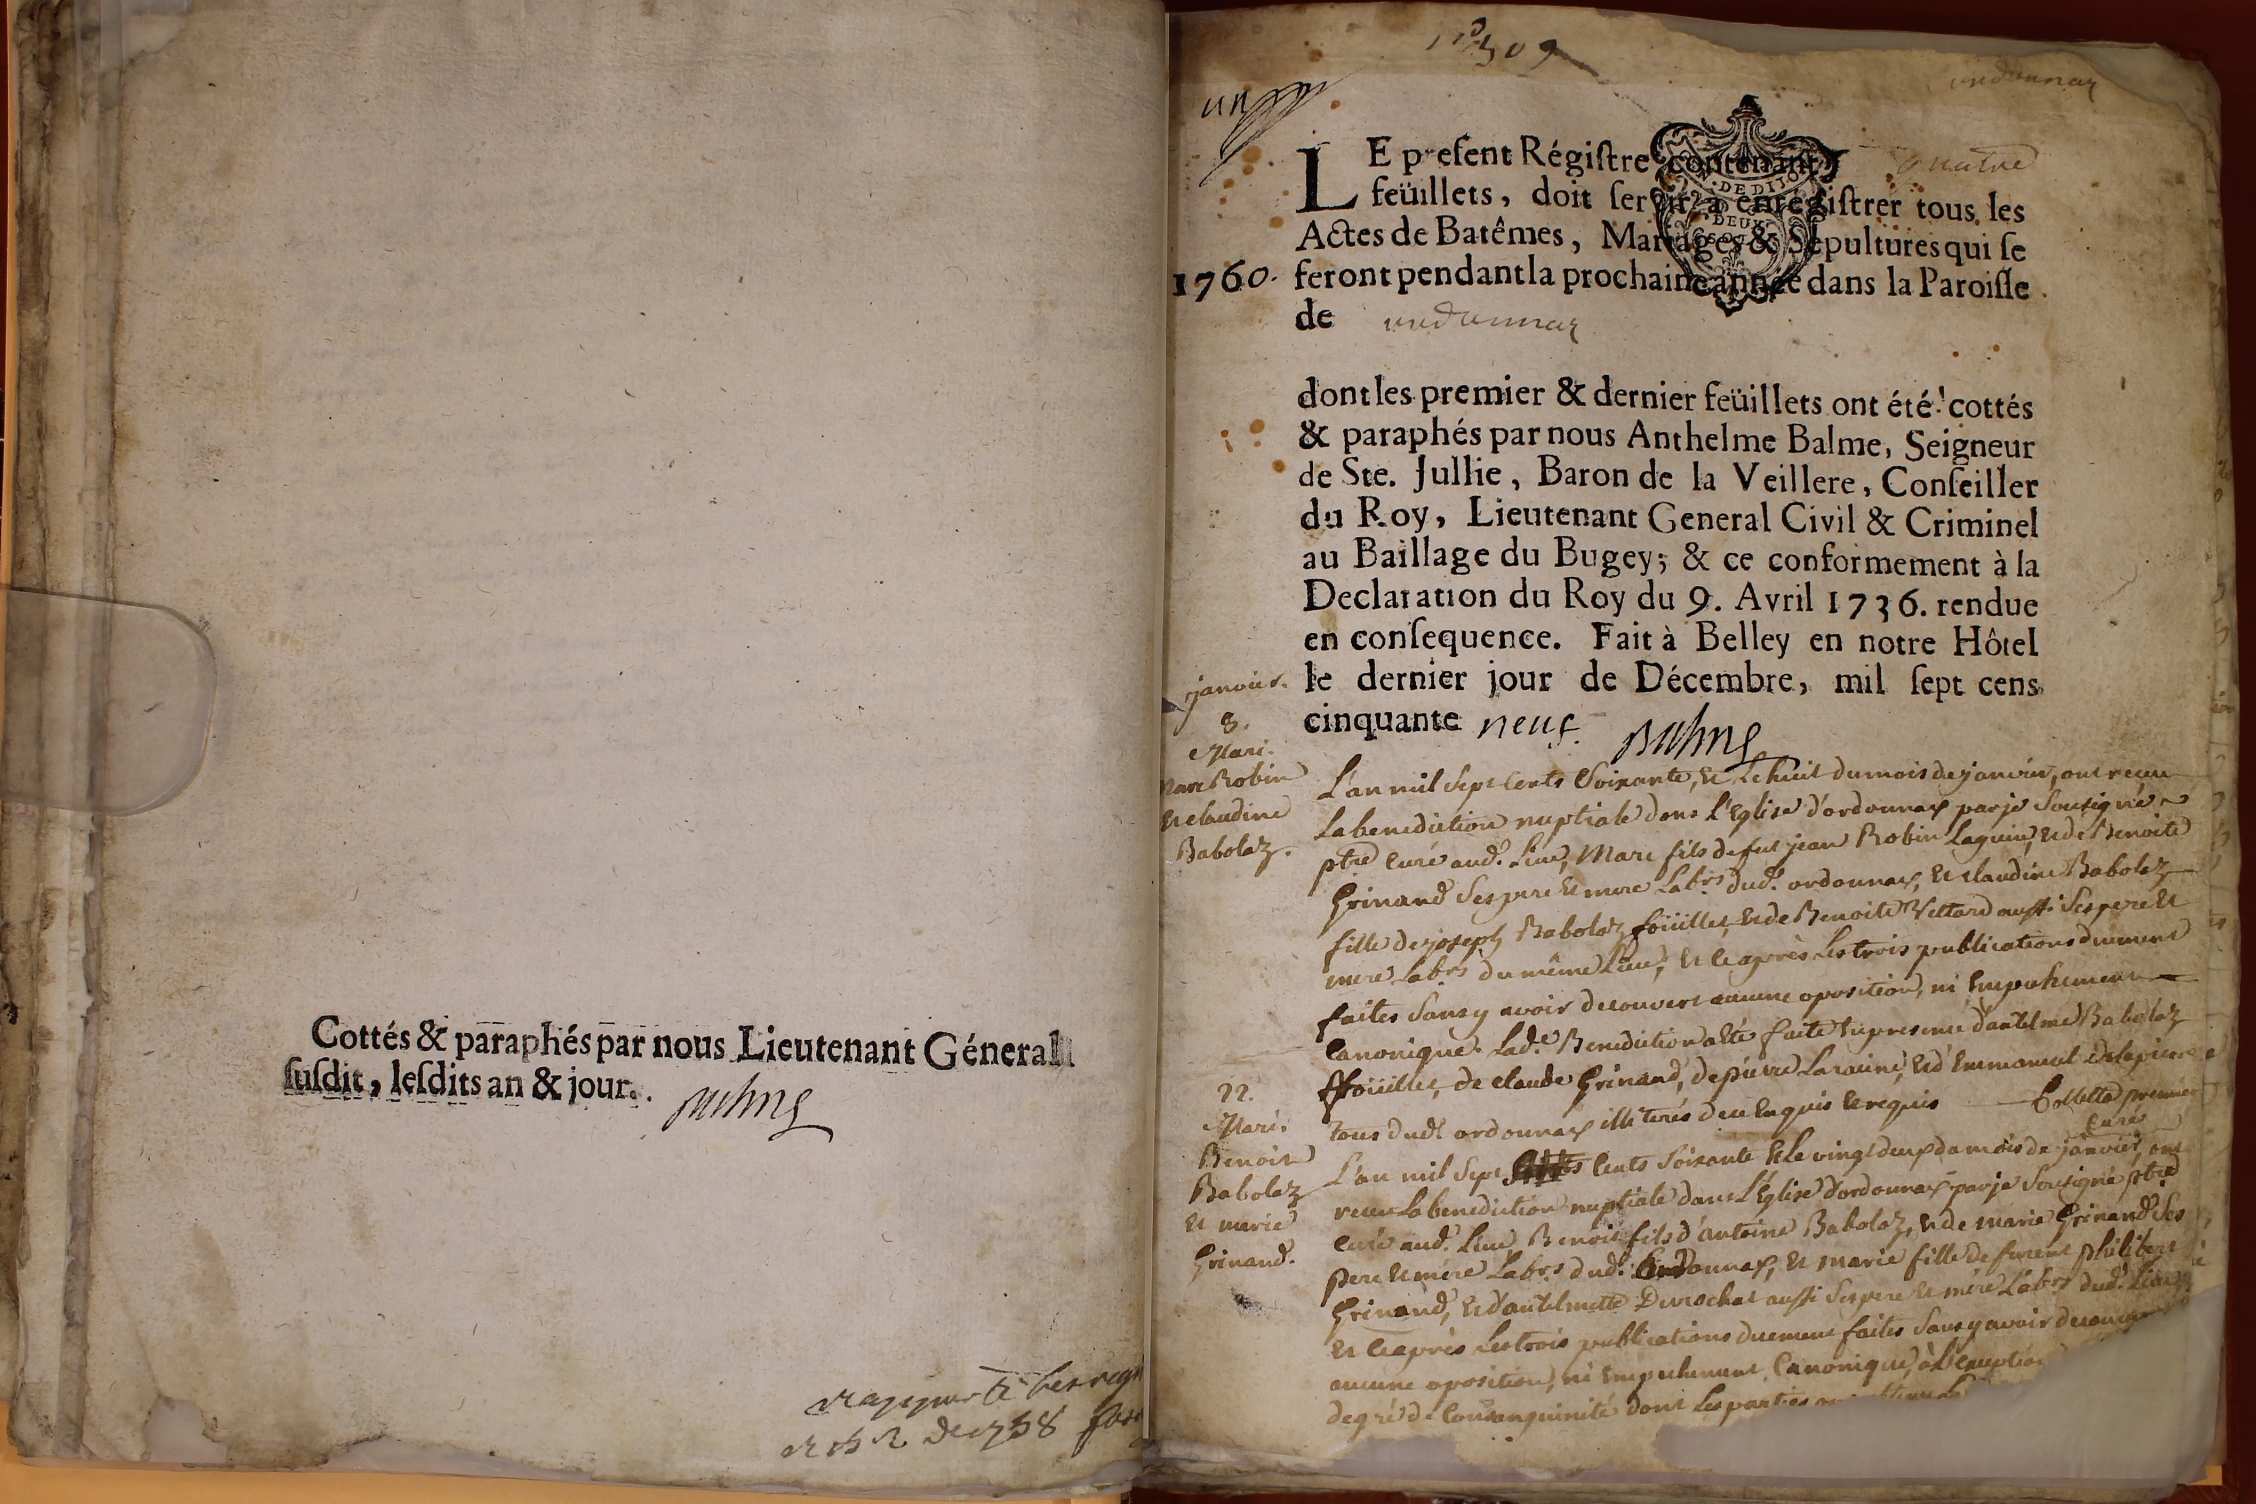 Cottés & paraphés par nous Lieutenant Géneral
ſuſdit, leſdits an & jour.
de 1758
un
509
ordonnaz
LE preſent Régiſtre contenant quatre
feüillets, doit ſervir à enrégiſtrer tous les
Actes de Batêmes, Mariages & Sépultures qui ſe
1760. feront pendant la prochaine année dans la Paroiſſe
de ordonnaz
DE DIJON
DEUX
SOLS
dont les premier & dernier feüillets ont été cottés
& paraphés par nous Anthelme Balme, Seigneur
de Ste. Jullie, Baron de la Veillere, Conſeiller
du Roy, Lieutenant General Civil & Criminel
au Baillage du Bugey; & ce conformement à la
Declaration du Roy du 9. Avril 1736. rendue
en conſequence. Fait à Belley en notre Hôtel
le dernier jour de Décembre, mil ſept cens
cinquante neuf. Balme
janvier.
8.
Mari.
Marc Robin
Et claudine
Babolaz.
L'an mil Sept Cents Soixante, Et Le huit du mois de janvier, ont receu
La benediction nuptiale dans L'Eglise d'ordonnax par je Sousigné
ptre Curé aud. Lieu, Marc fils de fut jean Robin Laguin, Et de Benoite
Grinand Ses pere Et mere Labrs dud. ordonnax, Et claudine Babolaz
fille de joseph Babolaz foüillet, Et de Benoite Vettard aussi Ses pere Et
mere Labrs du même Lieu, Et Ce après Les trois publications duement
faites Sans y avoir decouvert aucune oposition, ni Empechement
Canonique. Lade Benediction a Eté faite En presence d'antelme Babolaz
ffoüillet, de Claude Grinand, de pierre Laraine, Et d'Emmanuel Delapierre
tous dudt ordonnax illiterés de ce Enquis Et requis Colletta premier
Curé
22.
Mari.
Benoit
Babolaz
Et marie
Grinand.
L'an mil Sept Cents Soixante Et Le vingt deux du mois de janvier, ont
receu La benediction nuptiale dans L'Eglise d'ordonnax par je Sousigné ptre
Curé aud. Lieu, Benoit fils d'antoine Babolaz, Et de marie Grinand Ses
pere Et mere Labrs dud. ordonnax, Et marie fille de furent philibert
Grinand, Et d'antelmette Durochat aussi Ses pere Et mere Labrs dud. Lieu,
Et Ce après Les trois publications duement faites Sans y avoir decouvert
aucune oposition, ni Empechement Canonique, à L'Exception
degré de Consanguinité dont Les parties